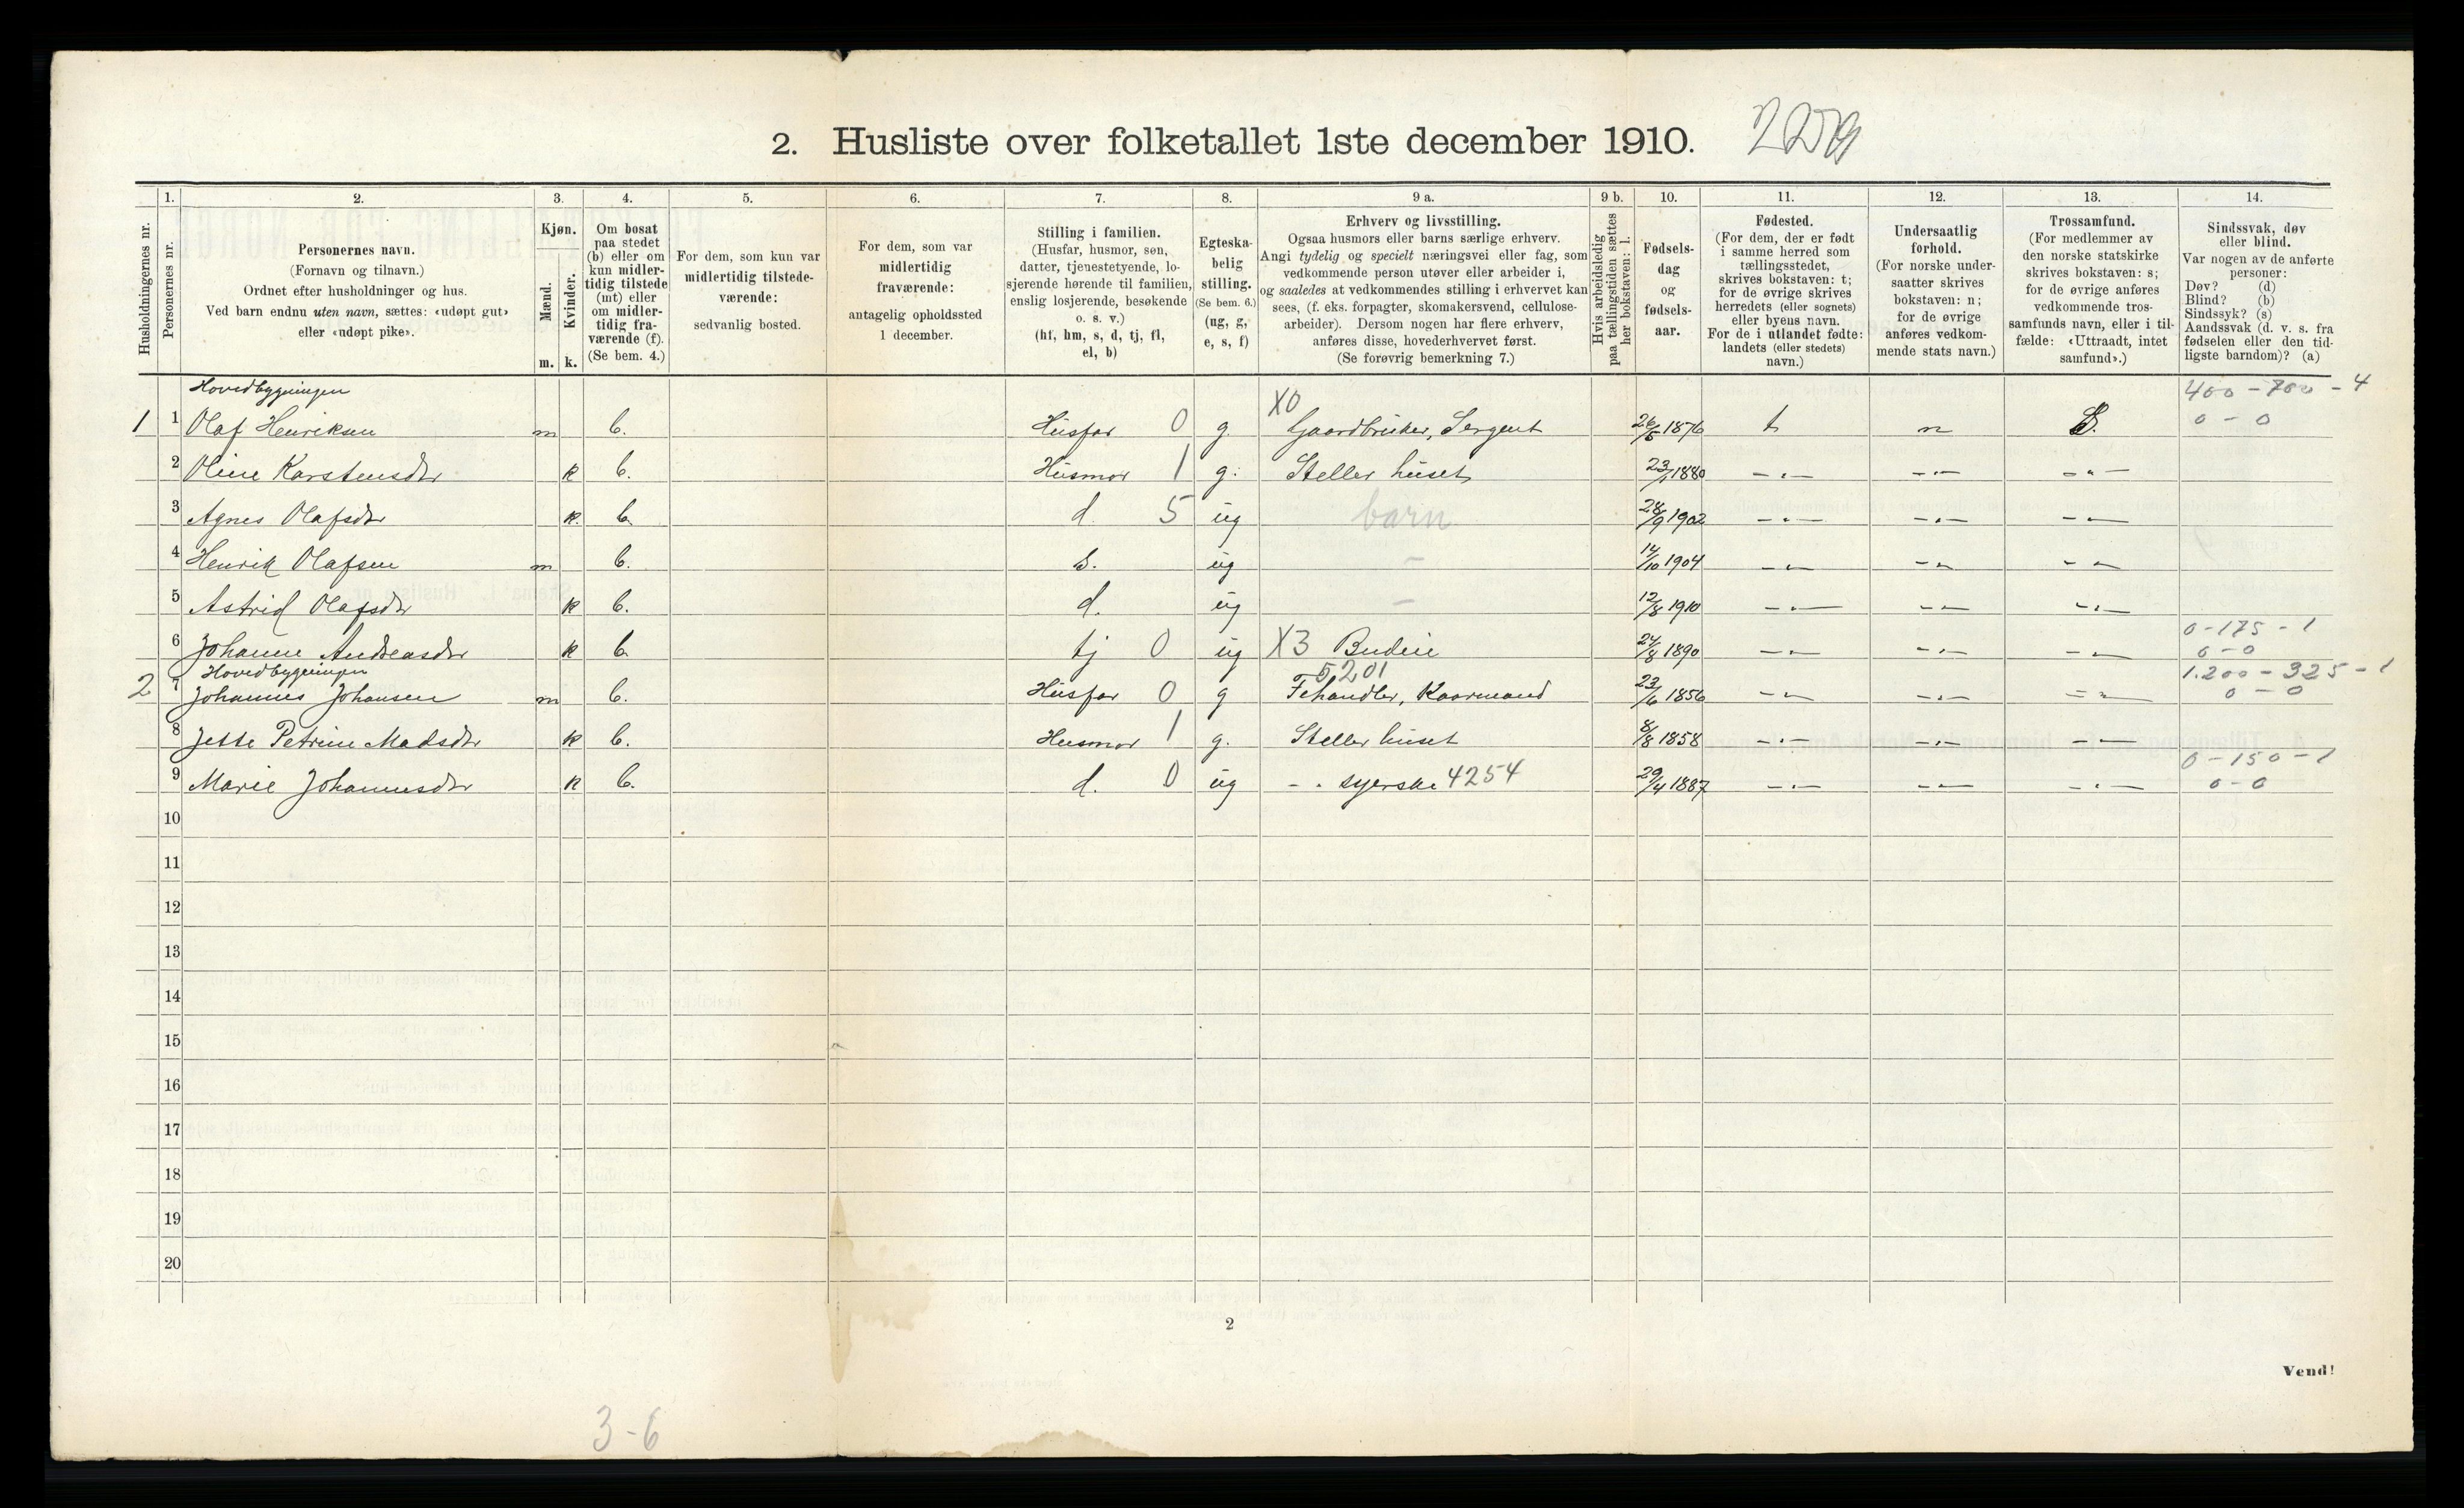 2. Husliste over folketallet 1ste december 1910.
Husholdningernes nr.
1.
Personernes nr.
2.
Personernes navn.
(Fornavn og tilnavn.)
Ordnet efter husholdninger og hus.
Ved barn endnu uten navn, sættes: «udøpt gut»
eller «udøpt pike».
3.
Kjøn.
Mænd.
m.
Kvinder.
k.
4.
Om bosat
paa stedet
(b) eller om
kun midler-
tidig tilstede
(mt) eller
om midler-
tidig fra-
værende (f).
(Se bem. 4.)
5.
For dem, som kun var
midlertidig tilstede-
værende:
sedvanlig bosted.
6.
For dem, som var
midlertidig
fraværende:
antagelig opholdssted
1 december.
7.
Stilling i familien.
(Husfar, husmor, søn,
datter, tjenestetyende, lo-
sjerende hørende til familien,
enslig losjerende, besøkende
o. s. v.)
(hf, hm, s, d, tj, fl,
el, b)
8.
Egteska-
belig
stilling.
(Se bem. 6.)
(ug, g,
e, s, f)
9 a.
Erhverv og livsstilling.
Ogsaa husmors eller barns særlige erhverv.
Angi tydelig og specielt næringsvei eller fag, som
vedkommende person utøver eller arbeider i,
og saaledes at vedkommendes stilling i erhvervet kan
sees, (f. eks. forpagter, skomakersvend, cellulose-
arbeider). Dersom nogen har flere erhverv,
anføres disse, hovederhvervet først.
(Se forøvrig bemerkning 7.)
9 b.
Hvis arbeidsledig
paa tællingstiden sættes
her bokstaven: l.
10.
Fødsels-
dag
og
fødsels-
aar.
11.
Fødested.
(For dem, der er født
i samme herred som
tællingsstedet,
skrives bokstaven: t;
for de øvrige skrives
herredets (eller sognets)
eller byens navn.
For de i utlandet fødte:
landets (eller stedets)
navn.)
12.
Undersaatlig
forhold.
(For norske under-
saatter skrives
bokstaven: n;
for de øvrige
anføres vedkom-
mende stats navn.)
13.
Trossamfund.
(For medlemmer av
den norske statskirke
skrives bokstaven: s;
for de øvrige anføres
vedkommende tros-
samfunds navn, eller i til-
fælde: «Uttraadt, intet
samfund».)
14.
Sindssvak, døv
eller blind.
Var nogen av de anførte
personer:
Døv? (d)
Blind? (b)
Sindssyk? (s)
Aandssvak (d. v. s. fra
fødselen eller den tid-
ligste barndom)? (a)
Hovedbygningen 400 - 700 - 4
1 1 Olaf Henriksen m b. Husfar 0 g. X0 Gaardbruker, Sergent 26/5 1876 t n S. 0 - 0
2 Oline Karstensdtr k b. Husmor 1 g. Steller huset 23/1 1880 - " - - " - - " -
3 Agnes Olafsdtr k. b. d. 5 ug barn 28/9 1902 - " - - " - - " -
4 Henrik Olafsen m b. s. ug - 14/10 1904 - " - - " - - " -
5 Astrid Olafsdtr k b. d. ug - 12/8 1910 - " - - " - - " -
0 - 175 - 1
6 Johanne Andreasdtr k b. tj 0 ug X3 Budeie 24/8 1890 - " - - " - - " - 0 - 0
Hovedbygningen 5201 1.200 - 325 - 1
2 7 Johannes Johansen m b. Husfar 0 g Fehandler, Kaarmand 23/6 1856 - " - - " - - " - 0 - 0
8 Jette Petrine Madsdtr k b. Husmor 1 g. Steller huset 8/8 1858 - " - - " - - " -
0 - 150 - 1
9 Marie Johannesdtr k b. d. 0 ug - " syerske 4254 29/4 1887 - " - - " - - " - 0 - 0
10
11
12
13
14
15
16
17
18
19
20
2
Vend!
3 - 6